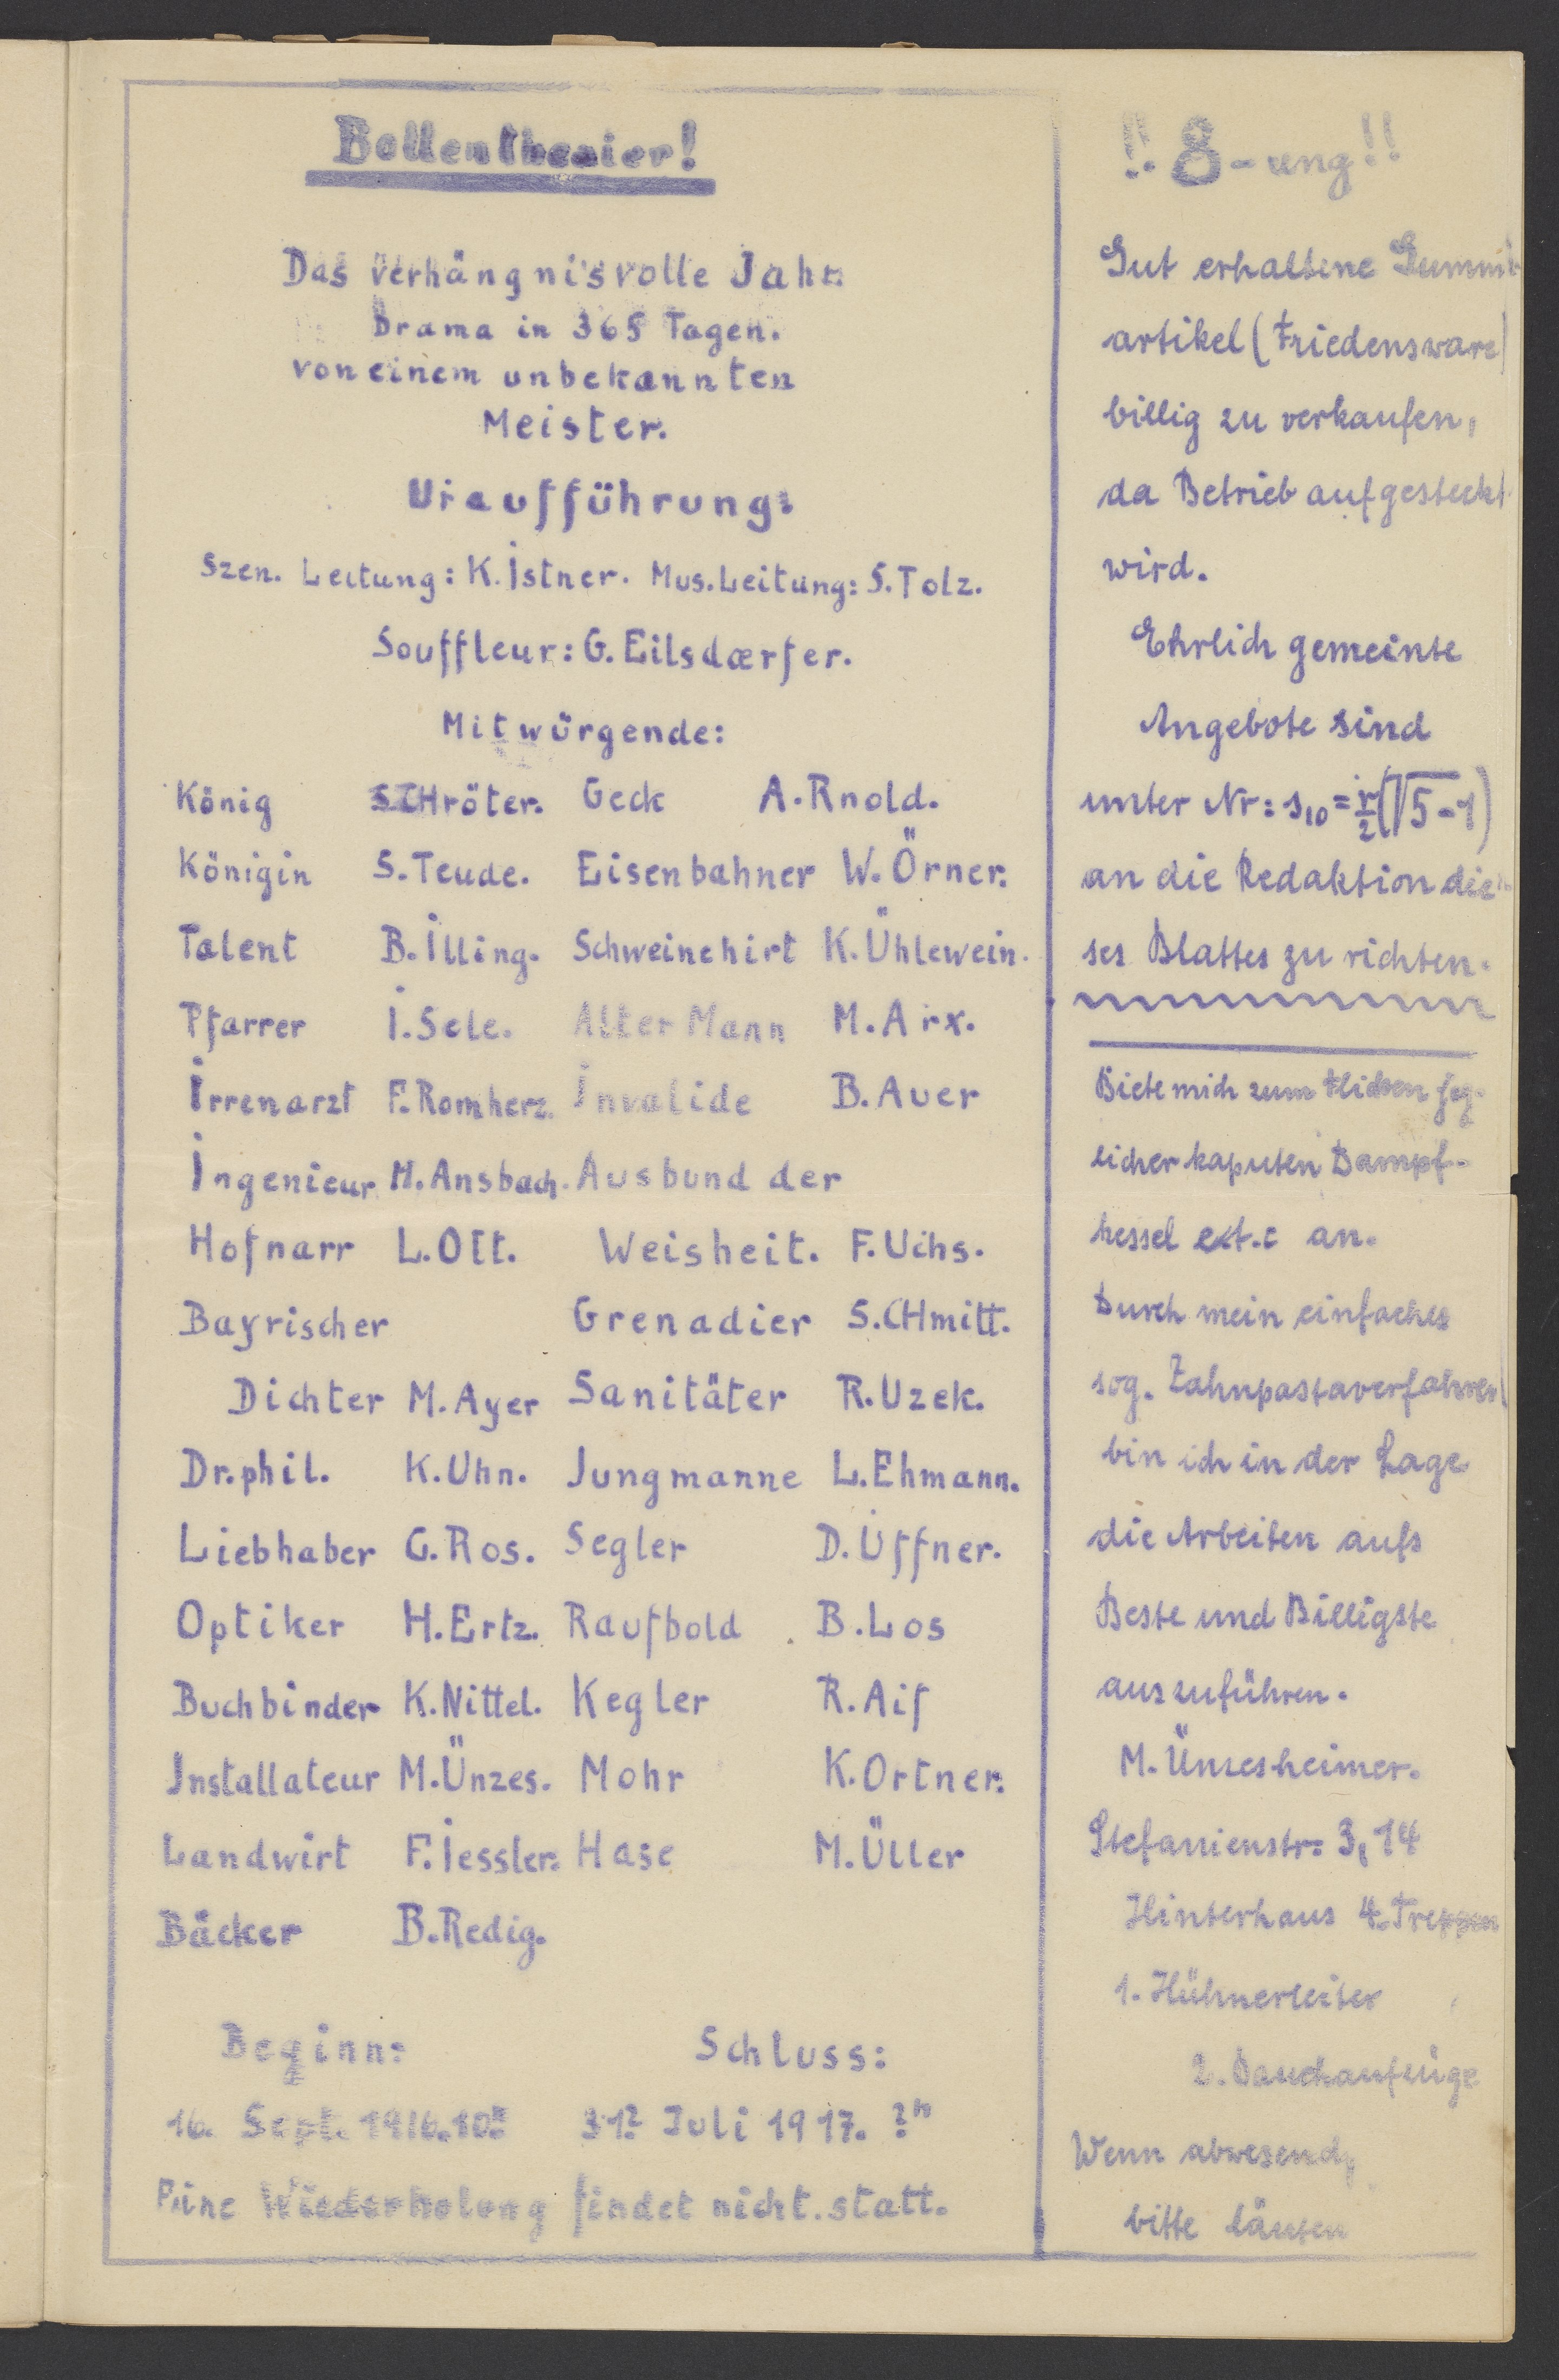 Bollentheater!
Das verhängnisvolle Jahr
Drama in 365 Tagen.
von einem unbekannten
Meister.
Uraufführung:
Szen. Leitung: K. Istner. Mus. Leitung: S. Tolz.
Souffleur: G. Eilsdœrfer.
Mitwürgende:
König SCHröter. Geck A. Rnold.
Königin S. Teude. Eisenbahner W. Örner.
Talent B. Illing. Schweinehirt K. Ühlewein.
Pfarrer I. Sele. Alter Mann M. Arx.
Irrenarzt F. Romherz. Invalide B. Auer
Ingenieur M. Ansbach. Ausbund der
Hofnarr L. Ott. Weisheit. F. Uchs.
Bayrischer Grenadier S. CHmitt.
Dichter M. Ayer Sanitäter R. Uzek.
Dr. phil. K. Uhn. Jungmanne L. Ehmann.
Liebhaber G. Ros. Segler D. Üffner.
Optiker H. Ertz. Raufbold B. Los
Buchbinder K. Nittel. Kegler R. Aif
Installateur M. Ünzes. Mohr K. Ortner.
Landwirt F. Iessler. Hase M. Üller
Bäcker B. Redig.
Beginn: Schluss:
16. Sept. 1916. 31? Juli 1917. ?h
Eine Wiederholung findet nicht statt.
!! 8-ung!!
Gut erhaltene Gummi
artikel (Friedensware)
billig zu verkaufen,
da Betrieb aufgesteckt
wird.
Ehrlich gemeinte
Angebote sind
unter Nr: s10 = r/2(√5-1)
an die Redaktion die-
ses Blattes zu richten.
Biete mich zum Flicken jeg-
licher kaputen Dampf-
kessel ext.c an.
Durch mein einfaches
sog. Zahnpastaverfahren
bin ich in der Lage
die Arbeiten aufs
Beste und Billigste
auszuführen.
M. Ünzesheimer.
Stefanienstr. 3,14
Hinterhaus 4. Treppen
1. Hühnerleiter
2.
Wenn abwesend,
bitte läuten